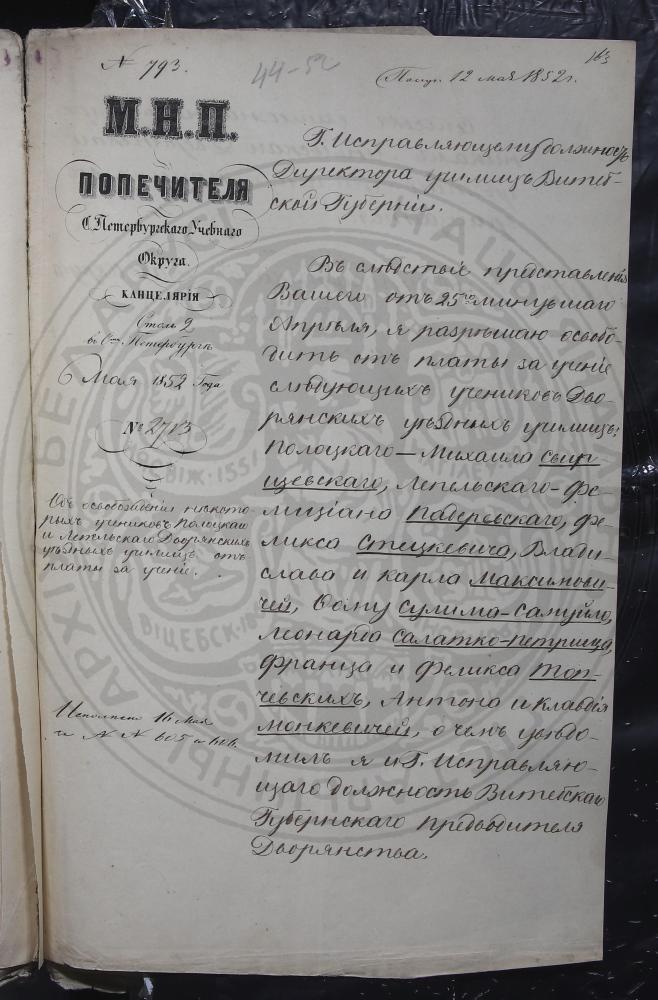 163
№ 793.
44-52
Получ. 12 мая 1852 г.
М.Н.П.
ПОПЕЧИТЕЛЯ
С. Петербургскаго Учебнаго
Округа.
КАНЦЕЛЯРІЯ
Столъ 2
в С. Петербургѣ
6 Мая 1852 Года
№ 2713
Объ освобожденіи нѣкото-
рыхъ учениковъ Полоцкаго
и Лепельскаго Дворянскихъ
уѣздныхъ училищъ отъ
платы за ученіе.
Исполнено 16 мая
за № № 605 и 606.
Г. Исправляющему должность
Директора училищъ Витеб-
ской Губерніи.
Въ слѣдствіе представленія
Вашего отъ 25го минувшаго
Апрѣля, я разрѣшаю освобо-
дить отъ платы за ученіе
слѣдующихъ учениковъ Дво-
рянскихъ уѣздныхъ училищъ:
Полоцкаго — Михаила Сыр-
щевскаго, Лепельскаго — Фе-
лиціана Падеревскаго, Фе-
ликса Стецкевича, Влади-
слава и Карла Максимови-
чей, Ѳому Сулима-Самуйло,
Леонарда Салатко-Петрища,
Франца и Феликса Топ-
чевскихъ, Антона и Клавдія
Монкевичей, о чемъ увѣдо-
милъ я и Г. Исправляю-
щаго должность Витебскаго
Губернскаго Предводителя
Дворянства.
АРХІ
НАЦЫ
НЯСВІЖ · 155
ВІЦЕБСК · 18